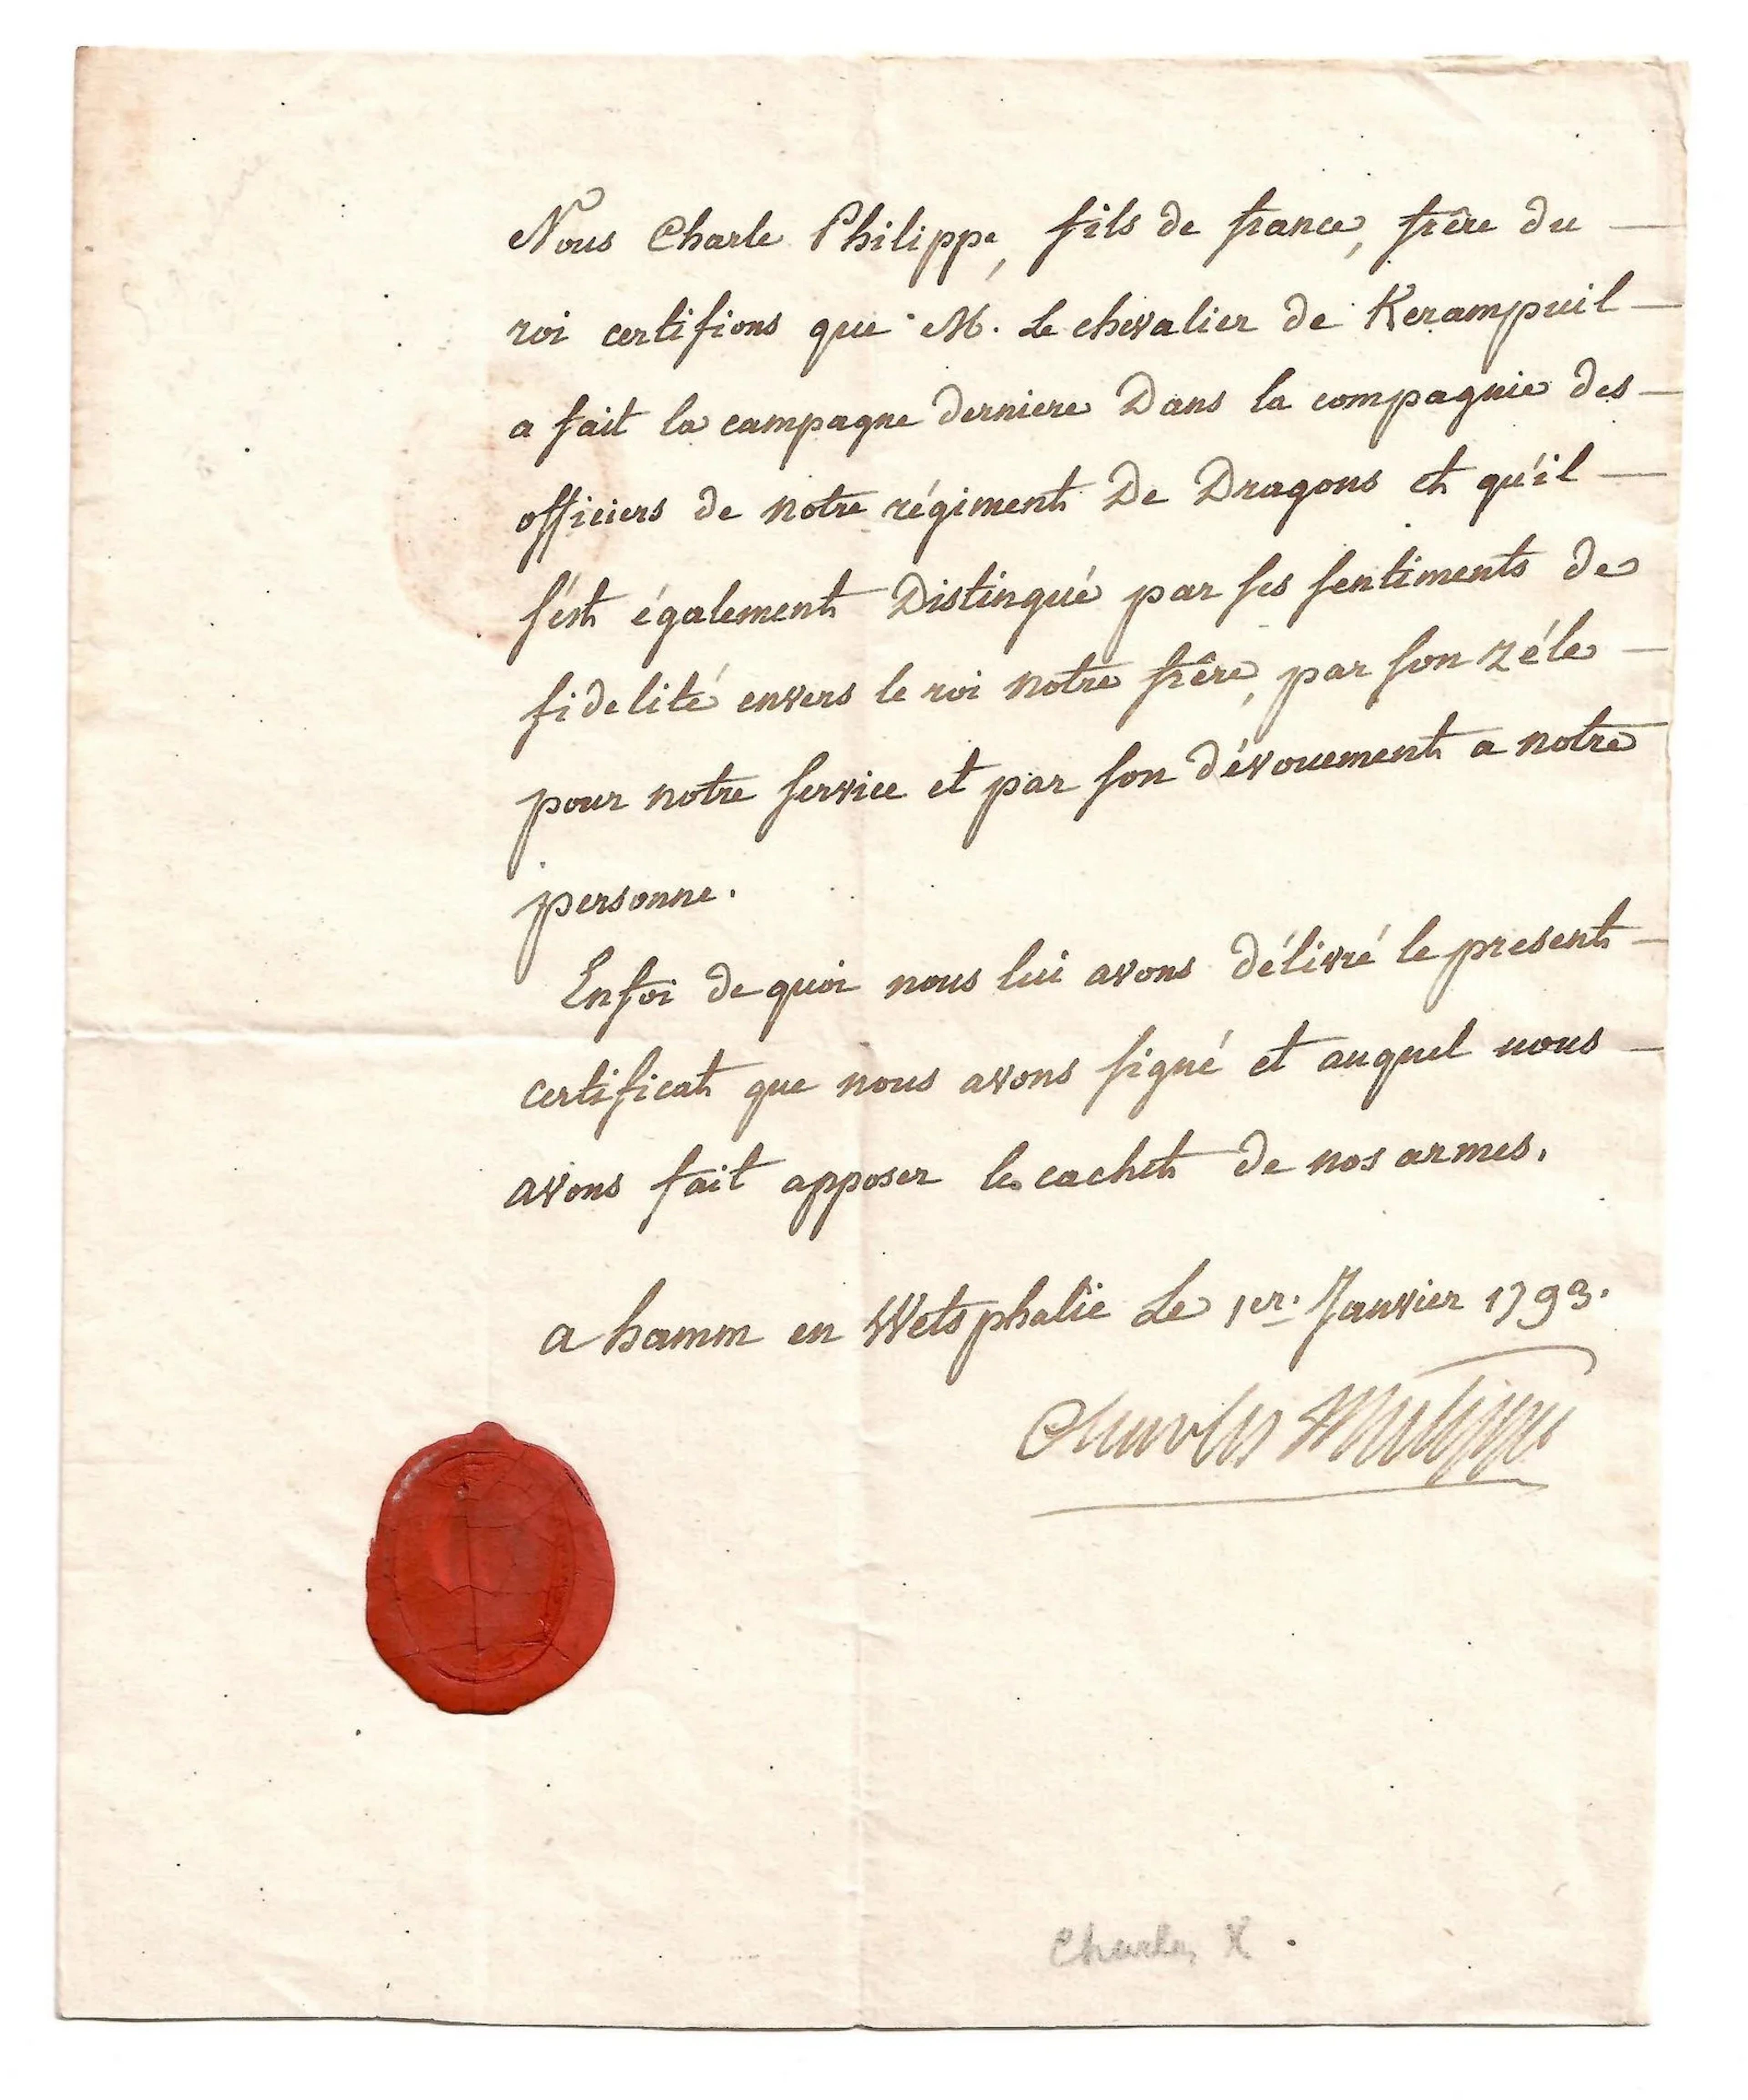 Nous Charle Philippe, fils de france, frêre du —
roi certifions que M. Le chevalier de Kerampuil —
a fait la campagne derniere Dans la compagnie des —
officiers de notre régiment De Dragons et qu'il —
s'est également Distingué par ses sentiments de
fidelité envers le roi notre frêre, par son zéle —
pour notre service et par son dévouement a notre
personne.
En foi de quoi nous lui avons délivré le present —
certificat que nous avons signé et auquel nous —
avons fait apposer le cachet de nos armes.
a hamm en Wetsphalie Le 1er. Janvier 1793.
Charles Philippe
Charles X.